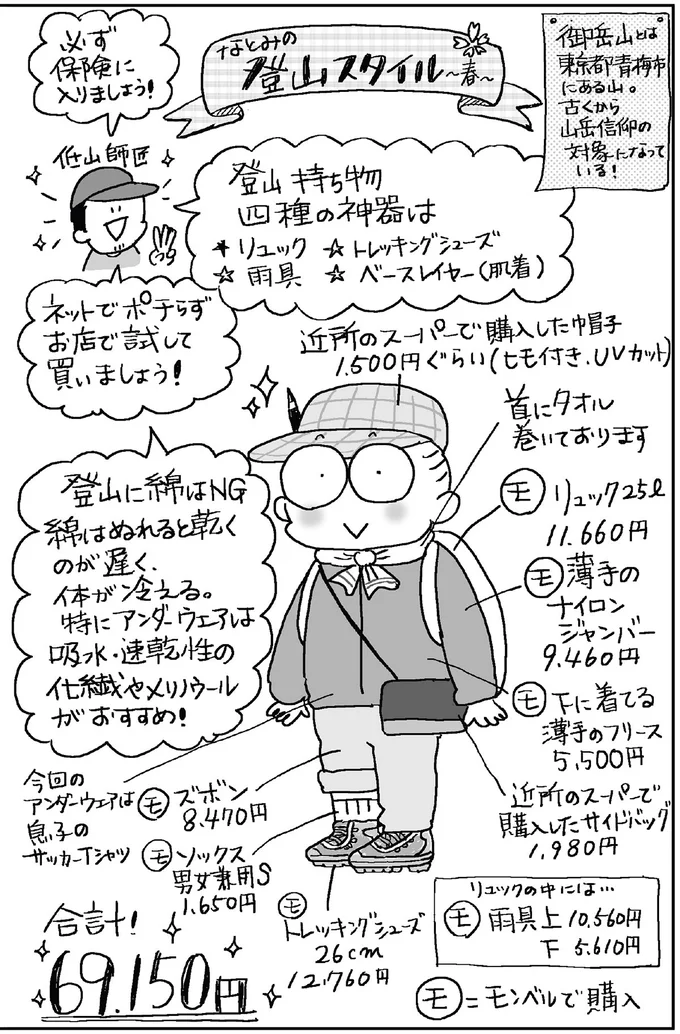 必ず
保険に
入りましょう!
なとみの
登山スタイル
〜春〜
御岳山とは
東京都青梅市
にある山。
古くから
山岳信仰の
対象になって
いる!
低山師匠
登山持ち物
四種の神器は
★リュック ☆トレッキングシューズ
☆雨具 ☆ベースレイヤー(肌着)
ネットでポチらず
お店で試して
買いましょう!
近所のスーパーで購入した帽子
1.500円ぐらい(ヒモ付き.UVカット)
首にタオル
巻いております
登山に綿はNG
綿はぬれると乾く
のが遅く、
体が冷える。
特にアンダーウェアは
吸水・速乾性の
化繊やメリノウール
がおすすめ!
モ リュック25ℓ
11.660円
モ 薄手の
ナイロン
ジャンバー
9.460円
モ 下に着てる
薄手のフリース
5,500円
近所のスーパーで
購入したサイドバッグ
1,980円
今回の
アンダーウェアは
息子の
サッカーTシャツ
モ ズボン
8.470円
モ ソックス
男女兼用S
1.650円
モ
トレッキングシューズ
26cm
12,760円
リュックの中には…
モ 雨具 上 10,560円
下 5,610円
合計!
69.150円
モ=モンベルで購入